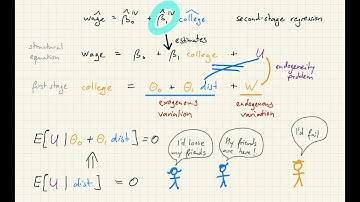 ŵage = β̂₀ᴵⱽ + β̂₁ᴵⱽ ĉollege second-stage regression
estimates
structural equation wage = β₀ + β₁ college + U
endogeneity problem
first stage college = θ₀ + θ₁ dist + W
exogenous variation endogenous variation
E[U | θ₀ + θ₁ dist] = 0
I'd loose my friends
My friends are here!
I'd fail
E[U | dist] = 0